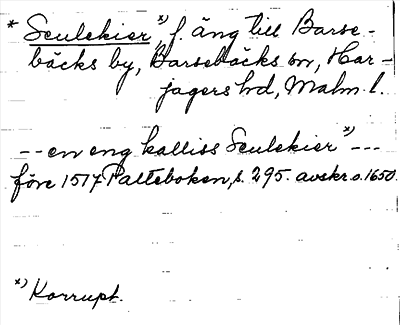 * Seulekier,*) f. äng till Barse-
bäcks by, Barsebäcks sn, Har-
jagers hd, Malm. l.
-- en eng kalliss Seulekier*) ---
före 1517 Palteboken, s. 295. avskr. o. 1650.
*) Korrupt.